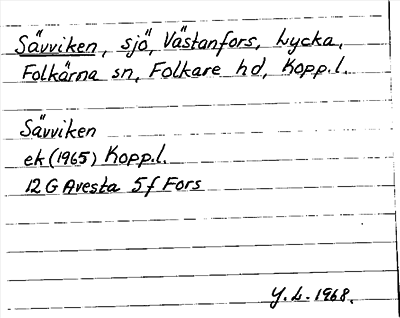 Sävviken, sjö, Västanfors, Lycka,
Folkärna sn, Folkare hd, Kopp.l.
Sävviken
ek (1965) Kopp.l.
12 G Avesta 5f Fors
Y.L. 1968.